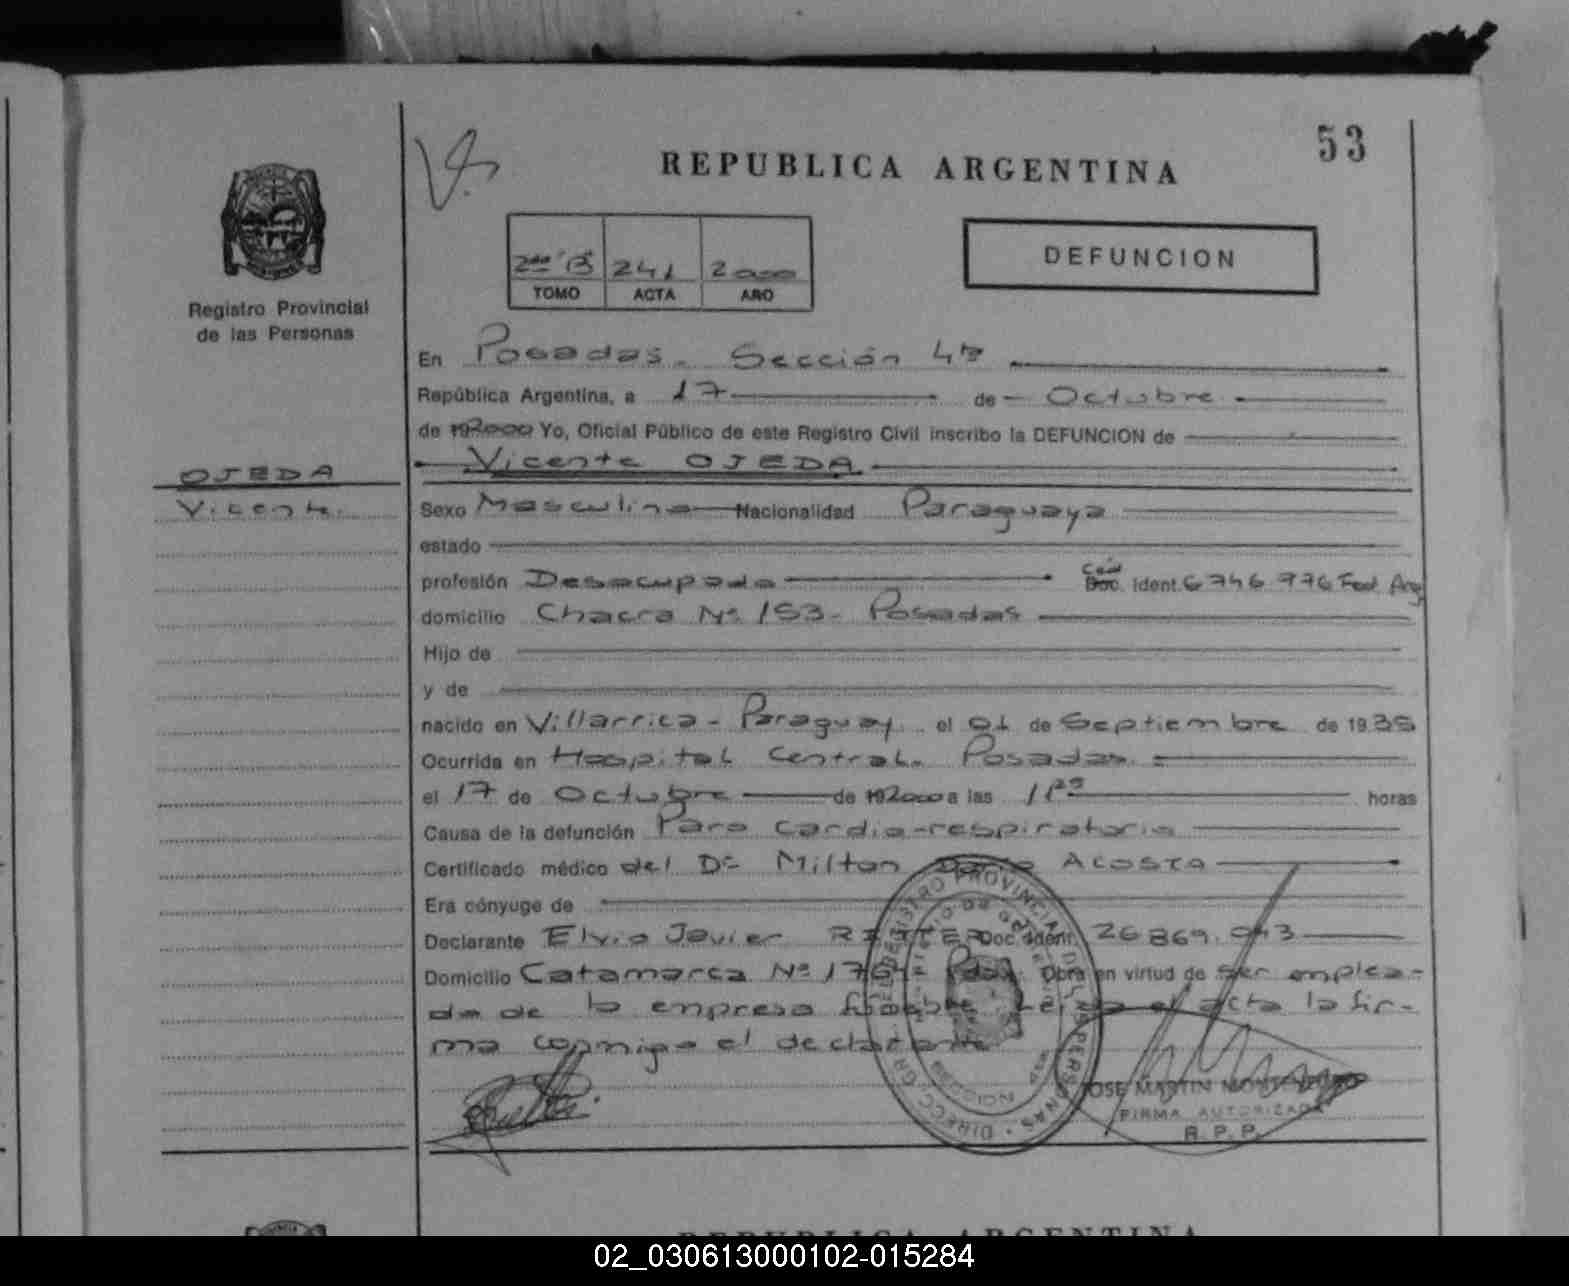 53
REPUBLICA ARGENTINA
Registro Provincial
de las Personas
2do "B" 241 2000
TOMO ACTA AÑO
DEFUNCION
En Posadas - Sección 4ta
República Argentina, a 17 de Octubre
de 192000 Yo, Oficial Público de este Registro Civil inscribo la DEFUNCION de
Vicente OJEDA
OJEDA
Vicente
Sexo Masculino Nacionalidad Paraguaya
estado
profesión Desocupado Céd. Doc. Ident. 6746.776 Fed. Arg
domicilio Chacra Nº 153 - Posadas
Hijo de
y de
nacido en Villarrica - Paraguay el 01 de Septiembre de 1935
Ocurrida en Hospital Central. Posadas
el 17 de Octubre de 192000 a las horas
Causa de la defunción Paro cardio-respiratorio
Certificado médico del Dr Milton Acosta
Era cónyuge de
Declarante Elvio Javier Doc. Ident. 26869.043
Domicilio Catamarca Nº Pdas. Obra en virtud de ser emplea-
do de la empresa fúnebre el acta la fir-
ma conmigo el declarante
DIRECC. GRAL. DEL REGISTRO PROVINCIAL DE LAS PERSONAS
MINISTERIO DE GOBIERNO
MISIONES
JOSE MARTIN
FIRMA AUTORIZADA
R. P. P.
REPUBLICA ARGENTINA
02_030613000102-015284